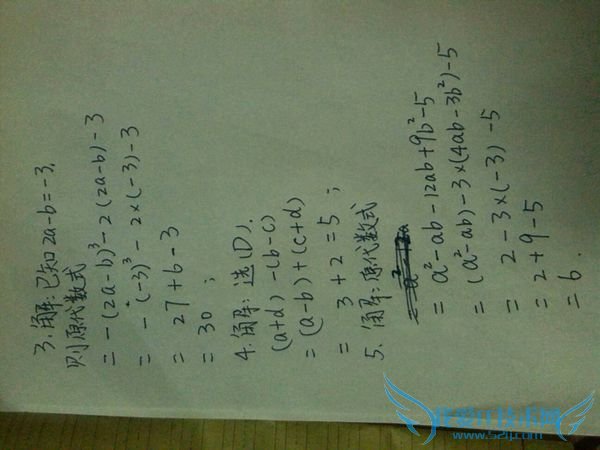 3. 解: 已知2a-b=-3,
则原代数式
= -(2a-b)³-2(2a-b)-3
= -(-3)³-2×(-3)-3
= 27+6-3
= 30;
4. 解: 选(D).
(a+d)-(b-c)
=(a-b)+(c+d)
= 3+2=5;
5. 解: 原代数式
= a²-ab-12ab+9b²-5
= (a²-ab)-3×(4ab-3b²)-5
= 2-3×(-3)-5
= 2+9-5
= 6.
www.52ij.com